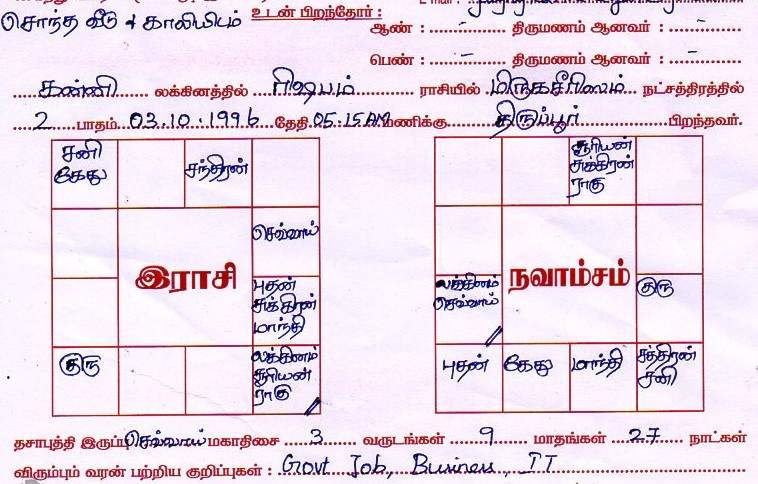 சொந்த வீடு + காலியிடம் உடன் பிறந்தோர் :
ஆண் : - திருமணம் ஆனவர் : -
பெண் : - திருமணம் ஆனவர் : -
கன்னி லக்கினத்தில் ரிஷபம் ராசியில் மிருகசீரிஷம் நட்சத்திரத்தில்
2 பாதம் 03.10.1996 தேதி 05.15AM மணிக்கு திருப்பூர் பிறந்தவர்.
சனி
கேது
சந்திரன்
செவ்வாய்
இராசி
புதன்
சுக்கிரன்
மாந்தி
குரு
லக்கினம்
சூரியன்
ராகு
சூரியன்
சுக்கிரன்
ராகு
நவாம்சம்
லக்கினம்
செவ்வாய்
குரு
புதன்
கேது
மாந்தி
சந்திரன்
சனி
தசாபுத்தி இருப்பு செவ்வாய் மகாதிசை 3 வருடங்கள் 9 மாதங்கள் 27 நாட்கள்
விரும்பும் வரன் பற்றிய குறிப்புகள் : Govt Job, Business, IT